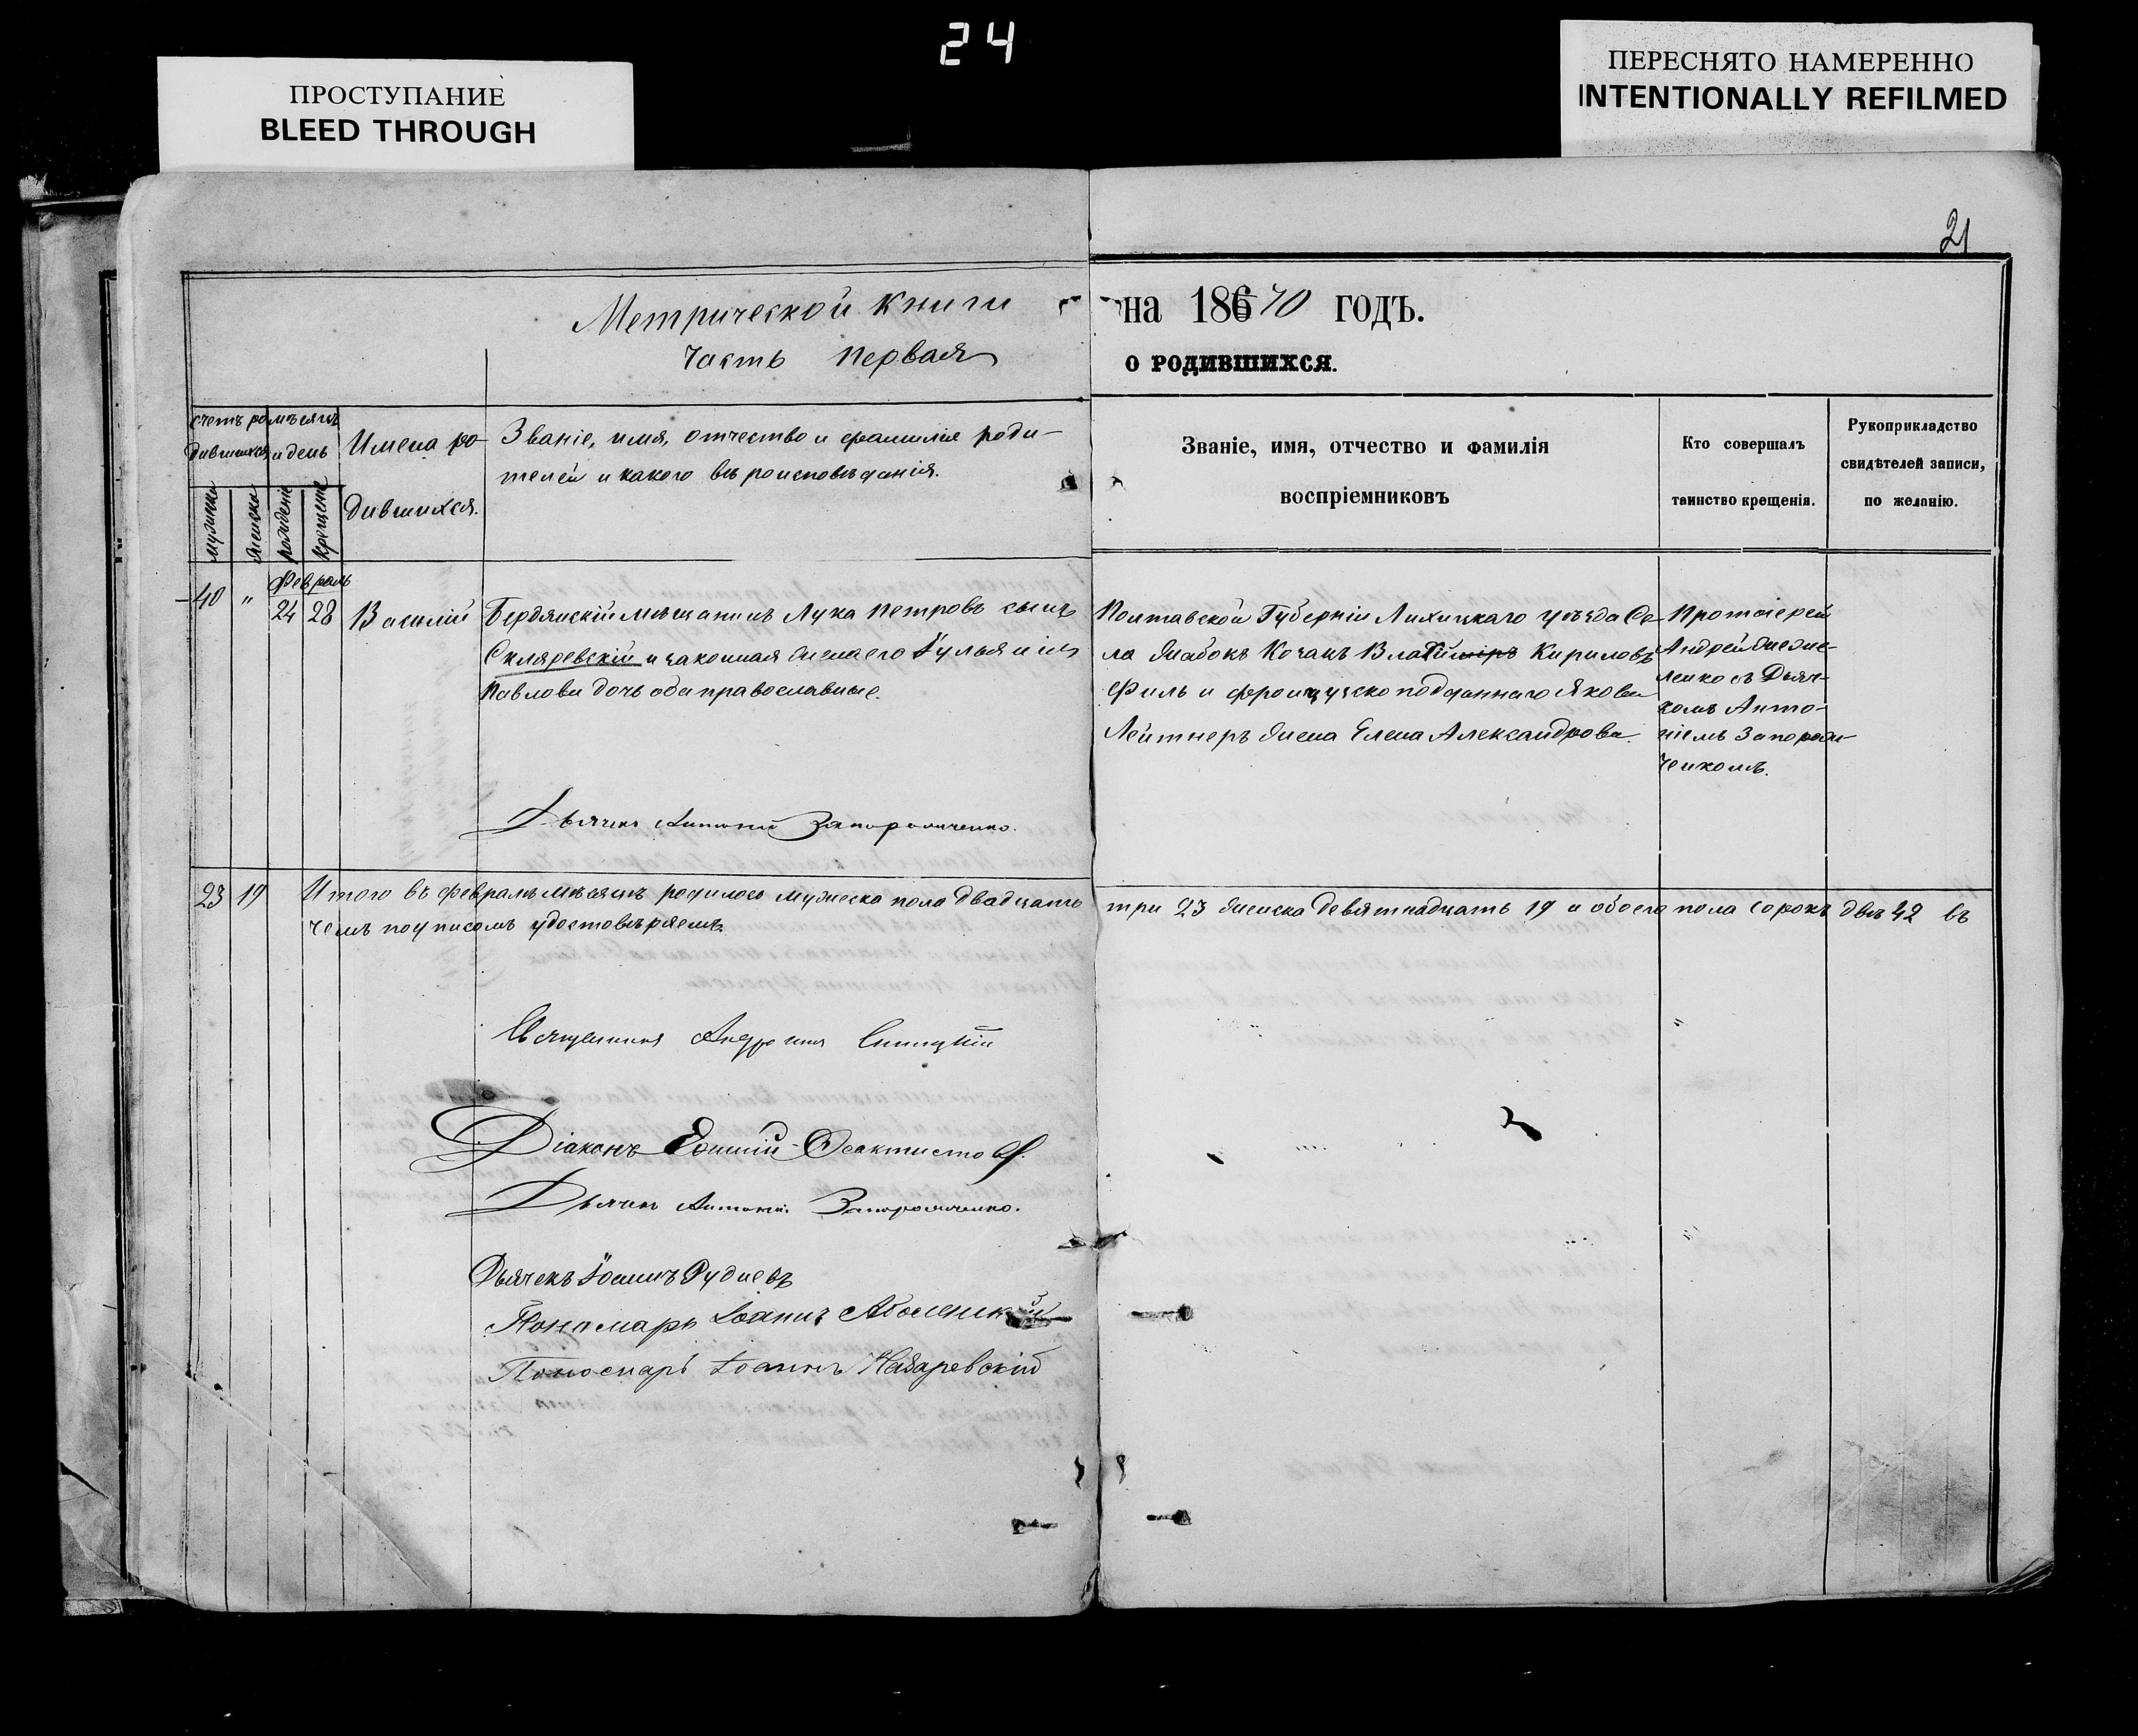 24
ПРОСТУПАНИЕ
BLEED THROUGH
ПЕРЕСНЯТО НАМЕРЕННО
INTENTIONALLY REFILMED
21
Метрической Книги
на 18670 ГОДЪ.
Часть Первая
О РОДИВШИХСЯ.
Счетъ родившихся
Мѣсяцъ и день
Имена родившихся.
Званіе, имя, отчество и фамилія роди-
телей и какого вѣроисповѣданія.
Званіе, имя, отчество и фамилія
воспріемниковъ
Кто совершалъ
таинство крещенія.
Рукоприкладство
свидѣтелей записи,
по желанію.
мужеска
женска
рожденіе
крещеніе
Февраль
40 " 24 28 Василій
Бердянскій мѣщанинъ Лука Петровъ сынъ
Скляревскій и законная жена его Іульянія
Павлова дочь оба православные.
Полтавской Губерніи уѣзда Се-
ла Кочанъ Кирилловъ
Филь и подданнаго Якова
Лейтнеръ жена Елена Александрова.
Протоіерей
Андрей
съ Дьяч-
комъ Анто-
ніемъ Запорож-
ченкомъ.
Дьячекъ Антоній Запорожченко.
23 19 Итого въ Февралѣ мѣсяцѣ родилось мужеска пола двадцать
три 23 женска девятнадцать 19 и обоего пола сорокъ два 42 въ
чемъ подписомъ удостовѣряемъ.
Священникъ Синицкій
Діаконъ Феактистовъ.
Дьячекъ Антоній Запорожченко.
Дьячекъ Іоаннъ Рудневъ
Пономарь Іоаннъ
Пономарь Іоаннъ